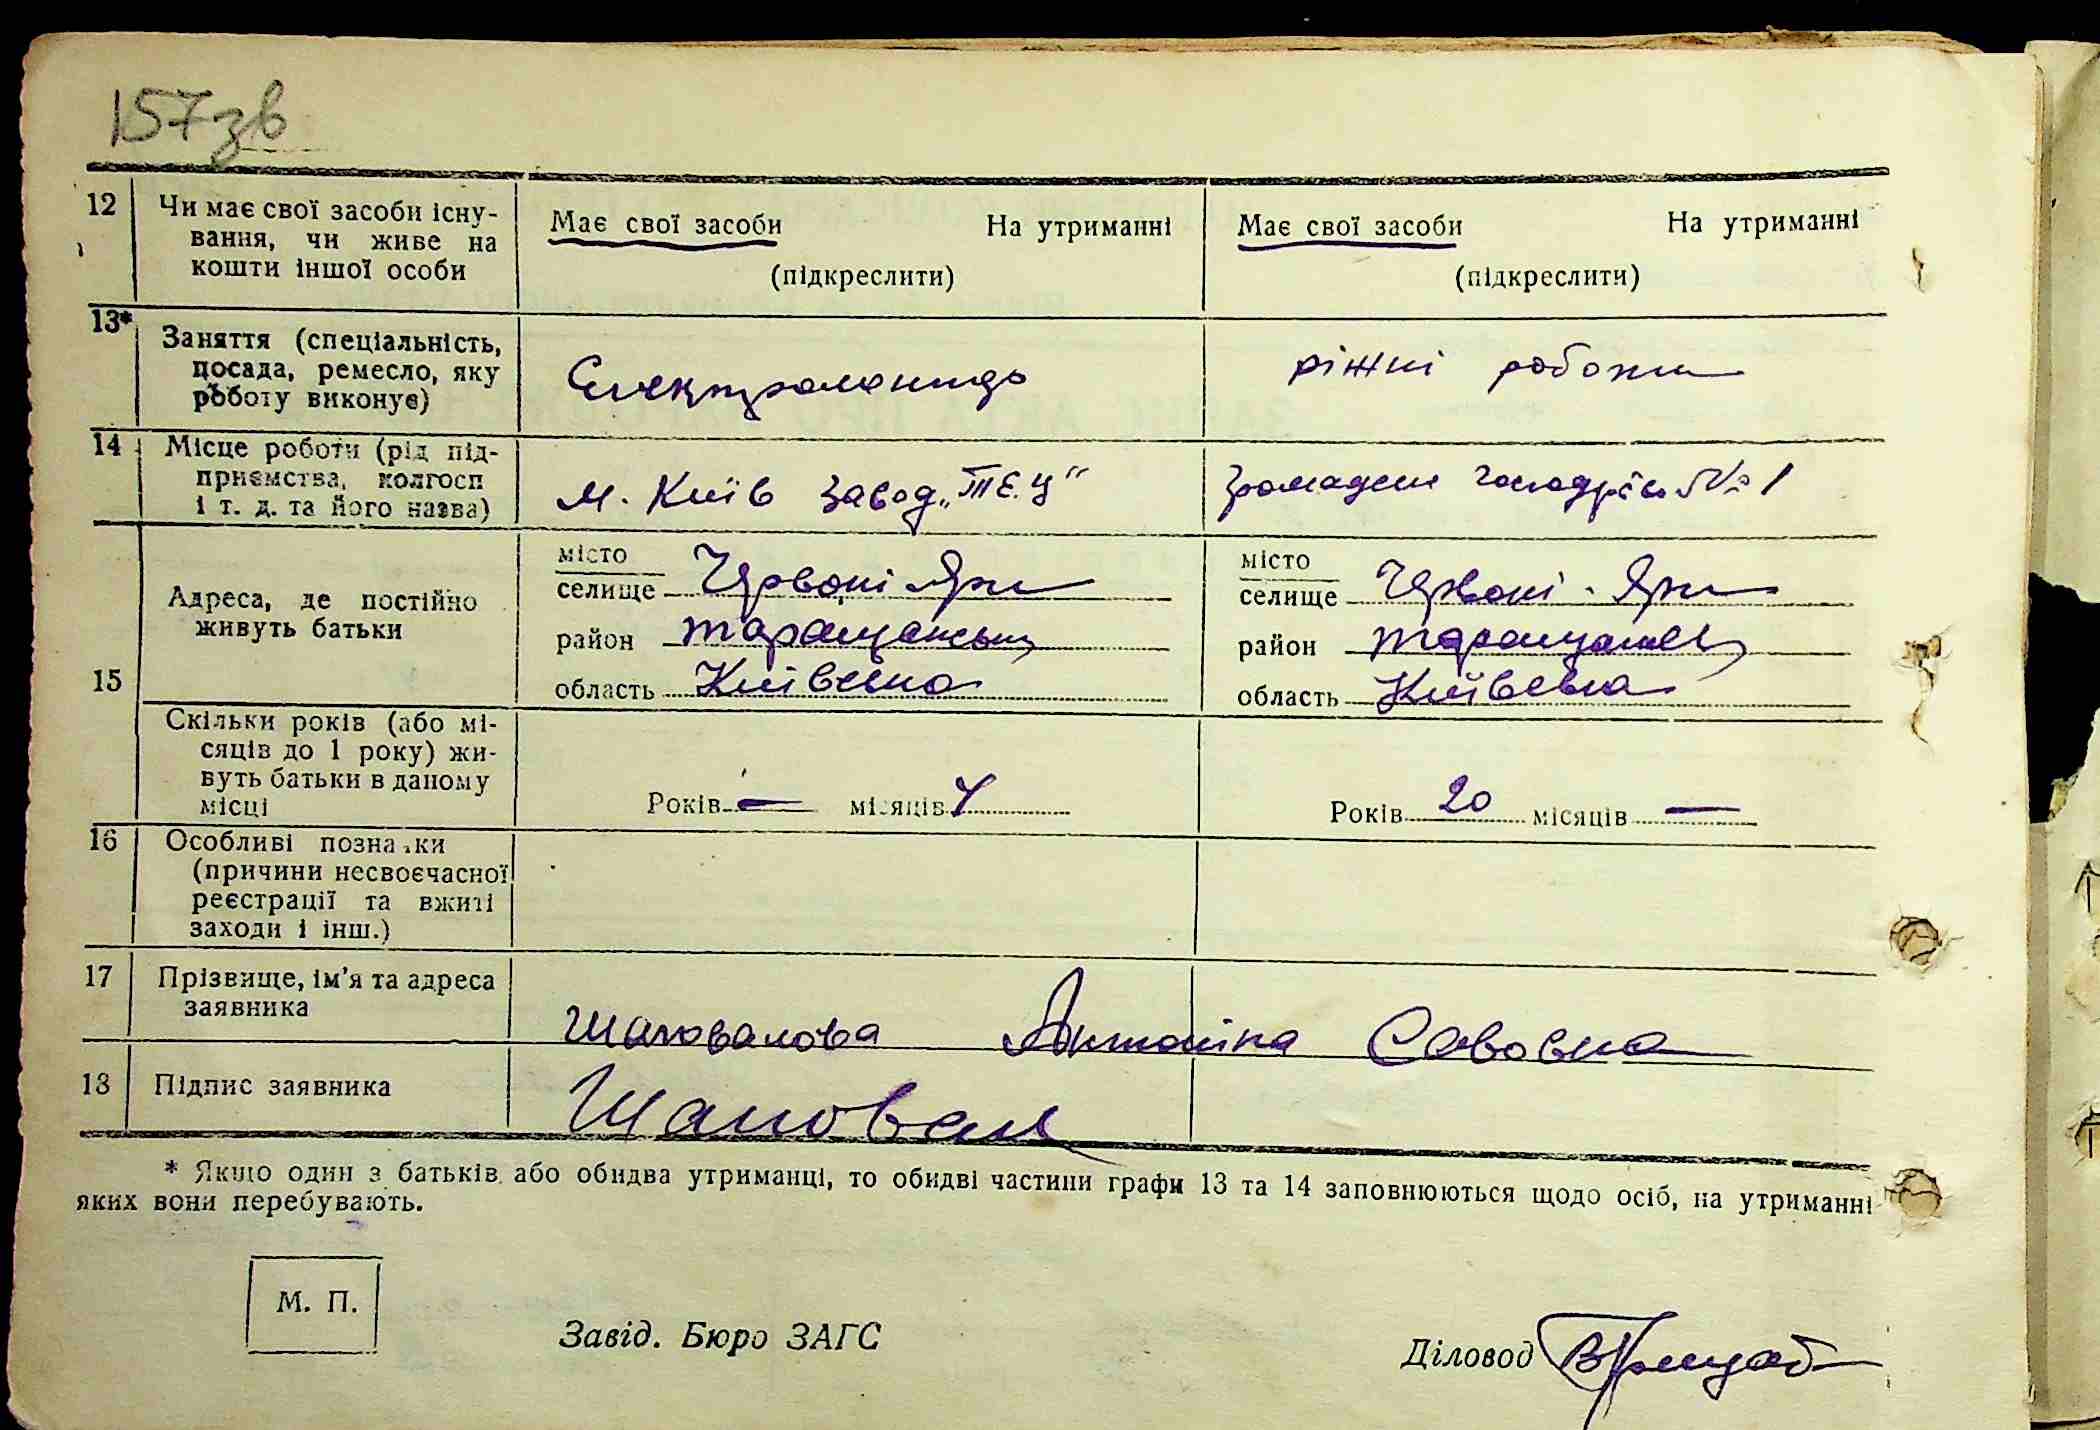 157зв
12 Чи має свої засоби існу-
вання, чи живе на
кошти іншої особи
Має свої засоби На утриманні
(підкреслити)
Має свої засоби На утриманні
(підкреслити)
13* Заняття (спеціальність,
посада, ремесло, яку
роботу виконує)
ріжні роботи
14 Місце роботи (рід під-
приємства, колгосп
і т. д. та його назва)
м. Київ Завод „ТЕЦ“
№ 1
15 Адреса, де постійно
живуть батьки
місто
селище Червоні Яри
район Таращанськ
область Київська
місто
селище Червоні - Яри
район
область Київська
Скільки років (або мі-
сяців до 1 року) жи-
вуть батьки в даному
місці
Років — місяців 4
Років 20 місяців —
16 Особливі познаки
(причини несвоєчасної
реєстрації та вжиті
заходи і інш.)
17 Прізвище, ім'я та адреса
заявника
Шаповалова Антоніна Савовна
13 Підпис заявника
Шаповал
* Якщо один з батьків або обидва утриманці, то обидві частини графи 13 та 14 заповнюються щодо осіб, на утриманні
яких вони перебувають.
М. П.
Завід. Бюро ЗАГС
Діловод